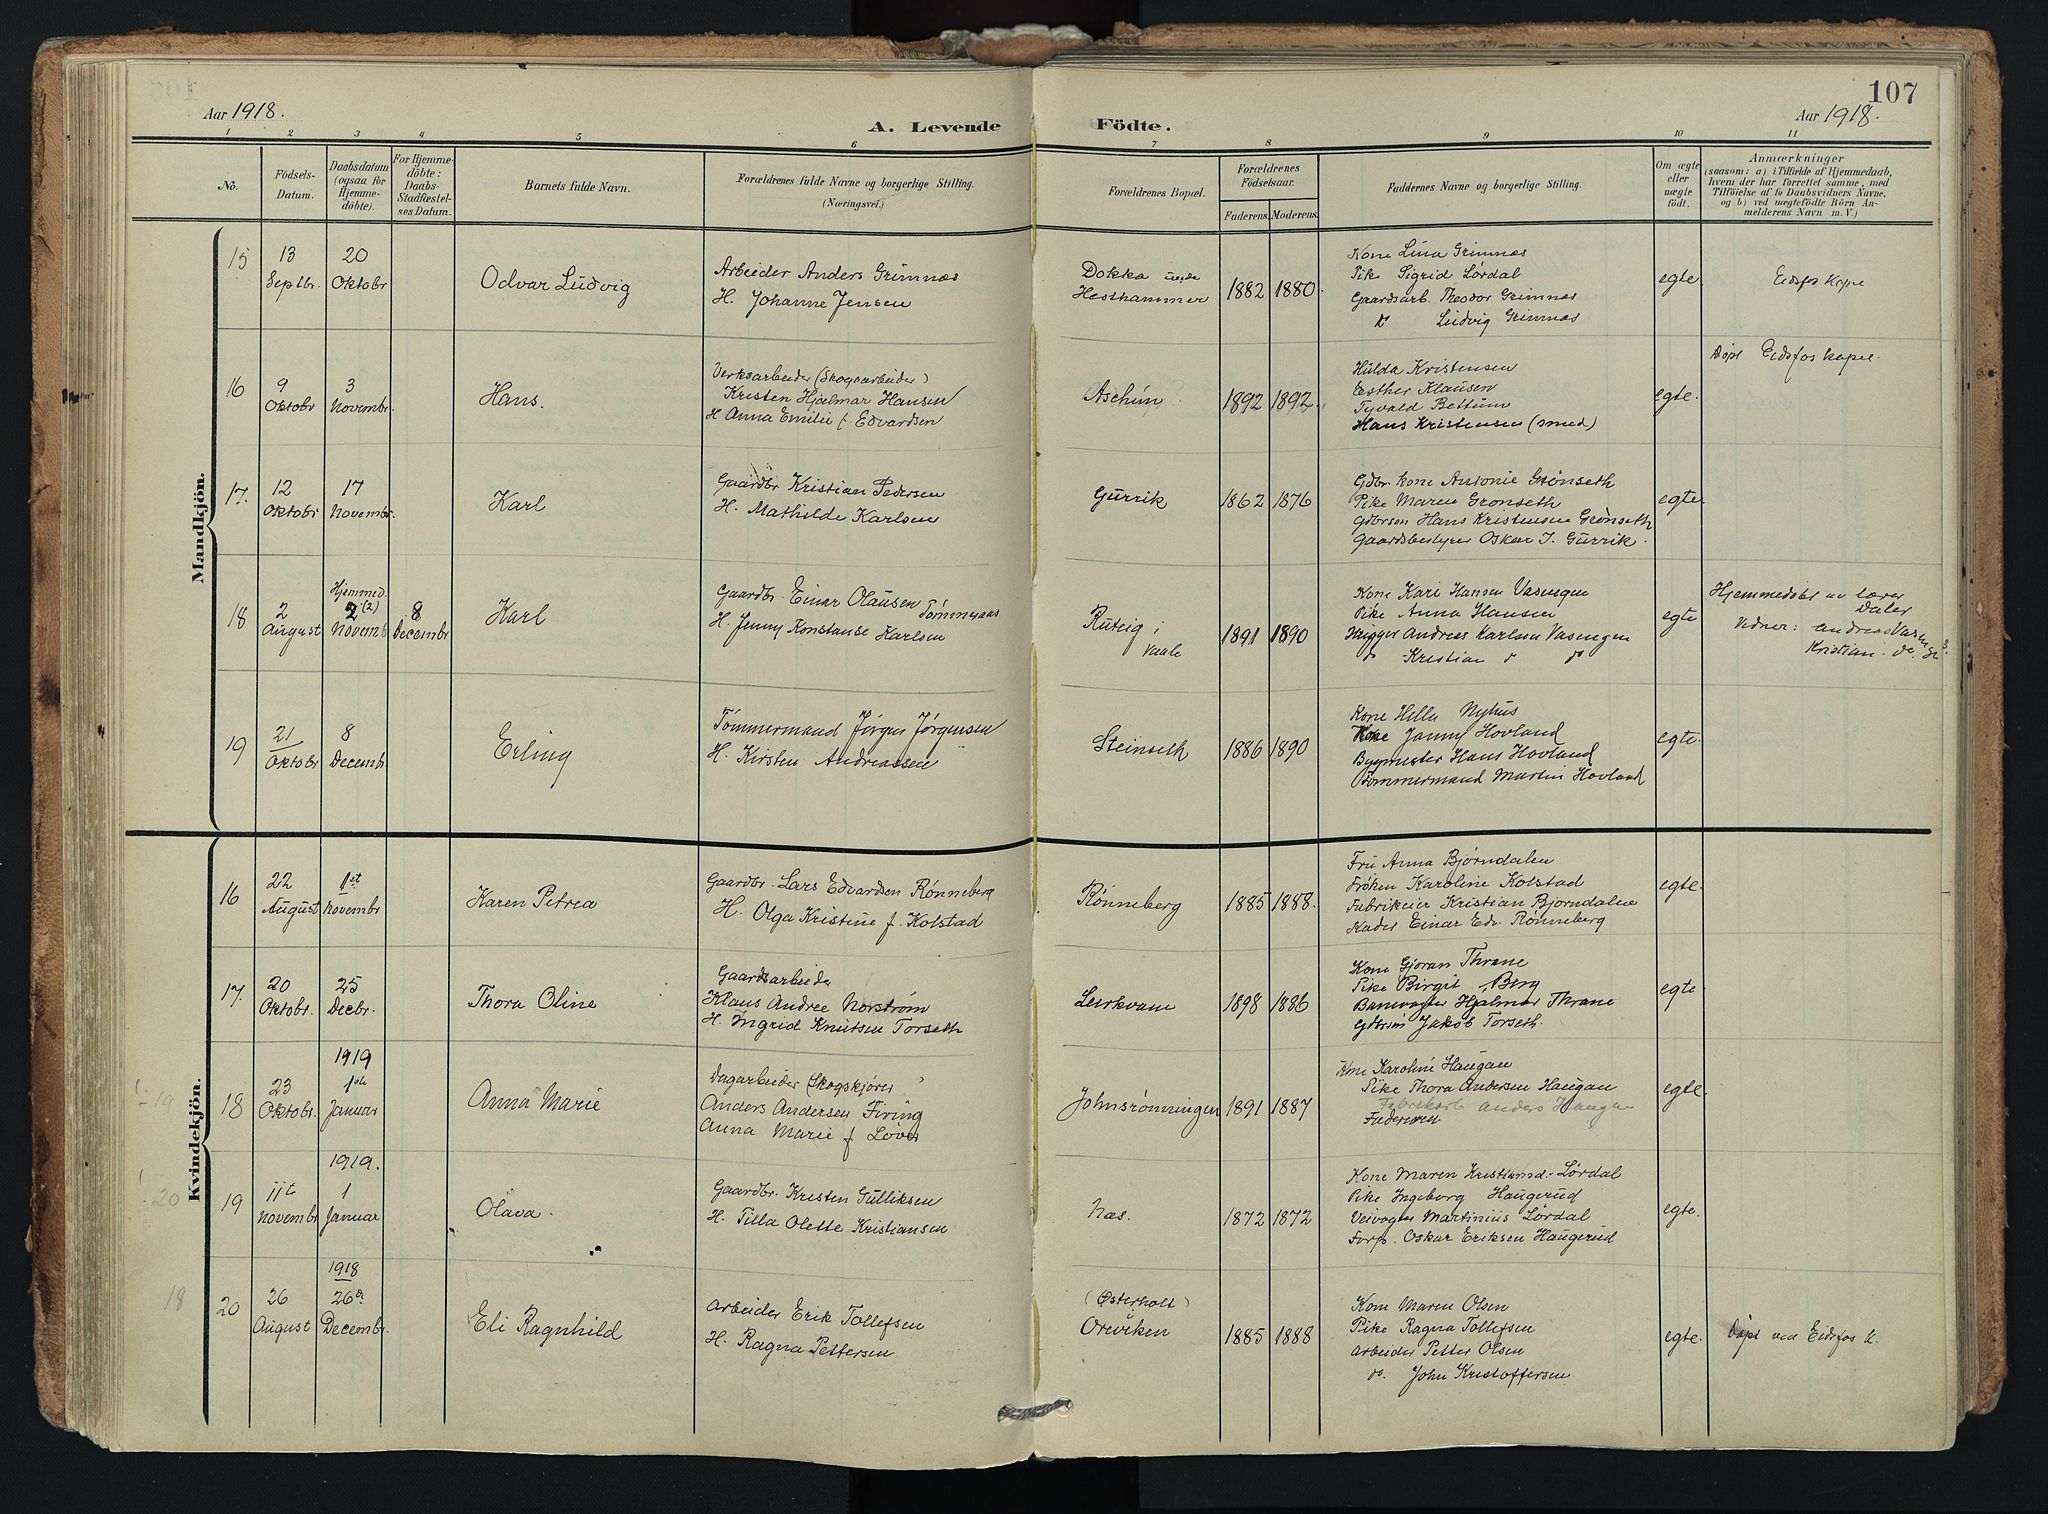 107
Aar 1918.
A. Levende Födte.
Aar 1918.
1 2 3 4 5 6 7 8 9 10 11
No.
Födsels-Datum.
Daabsdatum (ogsaa for Hjemme-döbte).
For Hjemme-döbte: Daabs-Stadfæstel-ses Datum.
Barnets fulde Navn.
Forældrenes fulde Navne og borgerlige Stilling.
(Næringsvei.)
Forældrenes Bopæl.
Forældrenes Födselsaar.
Faderens. Moderens.
Faddernes Navne og borgerlige Stilling.
Om ægte eller uægte födt.
Anmærkninger
(saasom: a) i Tilfælde af Hjemmedaab, hvem der har forrettet samme, med Tilföielse af to Daabsvidners Navne, og b) ved uægtefödte Börn An-melderens Navn m. V.)
Mandkjön.
15
13 Septbr.
20 Oktobr
Odvar Ludvig
Arbeider Anders Grimnæs
H. Johanne Jensen
Dokka
Hesthammer
1882 1880
Kone Lina Grimnæs
Pike Sigrid Lørdal
Gaardsarb. Theodor Grimnæs
Ludvig Grimnæs
egte
Eidsfos
16
9 Oktobr
3 Novembr.
Hans.
Verksarbeider (Skogsarbeider)
Kristen Hjalmar Hansen
H Anna Emilie f. Edvardsen
Aschim
1892 1892
Hulda Kristensen
Esther Klausen
Tyvald Bettum
Hans Kristensen (smed)
egte.
Døpt Eidsfos kapel.
17.
12 Oktobr
17 Novembr.
Karl
Gaardbr Kristian Pedersen
H. Mathilde Karlsen
Gurrik
1862 1876
Gdbr. kone Antonie Grønseth
Pike Maren Grønseth
Gdbrsøn Hans Kristensen Grønseth
Gaardsbestyrer Oskar J. Gurrik.
egte
18
2 August
Hjemmed. 2 (2) Novemb
8 Decembr
Karl
Gaardbr. Einar Olausen Tømmeraas
H. Jenny Konstanse Karlsen
Ruteig i
Vaale
1891 1890
Kone Kari Hansen Vasengen
Pike Anna Hansen
Hugger Andreas Karlsen Vasengen
Kristian
egte
Hjemmedøbt av lærer
Daler
Vidner: Andreas Vasengen
Kristian do
19
21 Oktobr
8 Decembr
Erling
Tømmermand Jørgen Jørgensen
H. Kirsten Andreassen
Steinseth
1886 1890
Kone Hella Nyhus
Kone Janny Hovland
Bygmester Hans Hovland
Tømmermand Martin Hovland
egte.
Kvindekjön.
16
22 August
1st Novembr
Karen Petrea
Gaardbr. Lars Edvardsen Rønneberg
H. Olga Kristine f. Kolstad
Rønneberg
1885 1888.
Fru Anna Bjørndalen
Frøken Karoline Kolstad
Fabrikeier Kristian Bjorndalen
Kadet Einar Edv. Rønneberg
egte.
17.
20 Oktobr.
25 Decbr.
Thora Oline
Gaardsarbeider
Klaus Andree Norstrøm
H. Ingrid Knutsen Torseth
Leirkvam
1898 1886
Kone Gjoran Thrane
Pike Birgit Berg
Banevogter Hjalmar Thrane
Gdbrsøn Jakob Torseth.
egte
19
18
23 Oktobr.
1919 1ste Januar
Anna Marie
Dagarbeider (Skogskjører)
Anders Andersen Firing
Anna Marie f Løver
Johnsrønningen
1891 1887
Kone Karoline Haugan
Pike Thora Andersen Haugan
Fabrikarb Anders Haugen
Faderen
egte.
20
19
11te Novembr
1919. 1 Januar
Olava.
Gaardbr. Kristen Gulliksen
H. Tilla Olette Kristiansen
Næs.
1872 1872
Kone Maren Kristiansd. Lørdal
Pike Ingeborg Haugerud
Veivogter Martinius Lørdal
Forp. Oskar Eriksen Haugerud
egte.
18
20
26 August
1918 26de Decembr.
Eli Ragnhild
Arbeider Erik Tollefsen
H. Ragna Pettersen
(Østerholt)
Oreviken
1885 1888
Kone Maren Olsen
Pike Ragna Tollefsen
Arbeider Petter Olsen
do. John Kristoffersen
egte.
Døpt ved Eidsfos K.